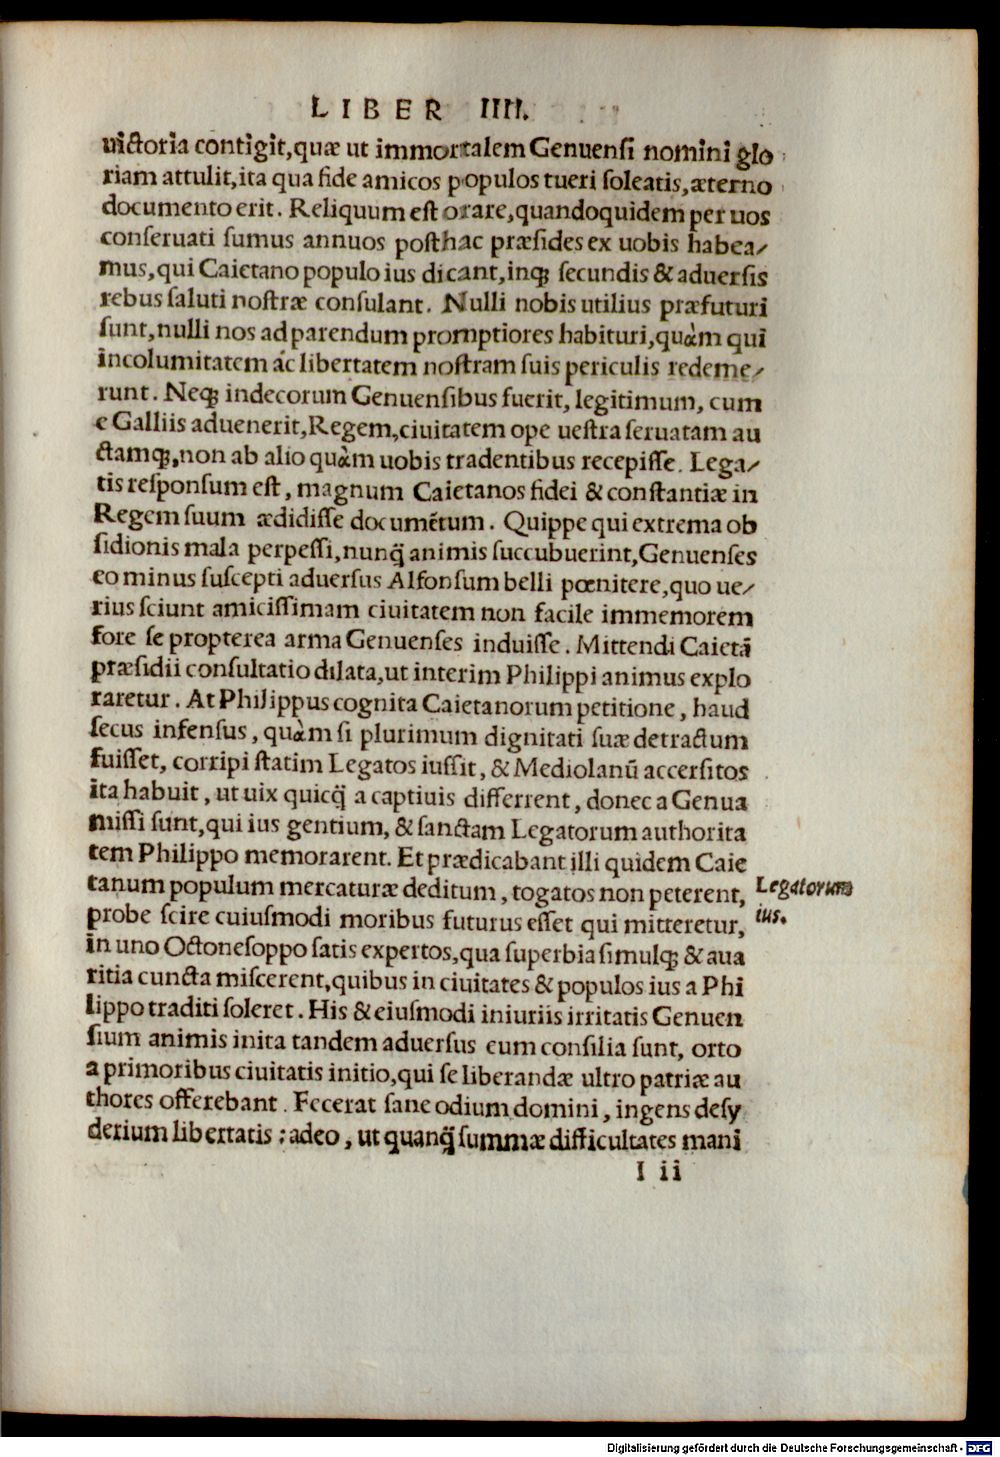 LIBER IIII.
uictoria contigit,quæ ut immortalem Genuensi nomini glo
riam attulit,ita qua fide amicos populos tueri soleatis,æterno
documento erit. Reliquum est orare,quandoquidem per uos
conseruati sumus annuos posthac præsides ex uobis habea/
mus,qui Caietano populo ius dicant,inq; secundis & aduersis
rebus saluti nostræ consulant. Nulli nobis utilius præfuturi
sunt,nulli nos ad parendum promptiores habituri,quàm qui
incolumitatem ác libertatem nostram suis periculis redeme/
runt. Neq; indecorum Genuensibus fuerit, legitimum, cum
e Galliis aduenerit,Regem,ciuitatem ope uestra seruatam au
ctamq;,non ab alio quàm uobis tradentibus recepisse. Lega/
tis responsum est, magnum Caietanos fidei & constantiæ in
Regem suum ædidisse documẽtum. Quippe qui extrema ob
sidionis mala perpessi,nunq̃ animis succubuerint,Genuenses
eo minus suscepti aduersus Alfonsum belli pœnitere,quo ue/
rius sciunt amicissimam ciuitatem non facile immemorem
fore se propterea arma Genuenses induisse. Mittendi Caietã
præsidii consultatio dilata,ut interim Philippi animus explo
raretur. At Philippus cognita Caietanorum petitione, haud
secus infensus, quàm si plurimum dignitati suæ detractum
fuisset, corripi statim Legatos iussit, & Mediolanũ accersitos
ita habuit, ut uix quicq̃ a captiuis differrent, donec a Genua
missi sunt,qui ius gentium, & sanctam Legatorum authorita
tem Philippo memorarent. Et prædicabant illi quidem Caie
tanum populum mercaturæ deditum, togatos non peterent,
probe scire cuiusmodi moribus futurus esset qui mitteretur,
in uno Octonesoppo satis expertos,qua superbia simulq; & aua
ritia cuncta miscerent,quibus in ciuitates & populos ius a Phi
lippo traditi soleret. His & eiusmodi iniuriis irritatis Genuen
sium animis inita tandem aduersus eum consilia sunt, orto
a primoribus ciuitatis initio,qui se liberandæ ultro patriæ au
thores offerebant. Fecerat sane odium domini, ingens desy
derium libertatis : adeo, ut quanq̃ summæ difficultates mani
I ii
Legatorum
ius.
Digitalisierung gefördert durch die Deutsche Forschungsgemeinschaft - DFG